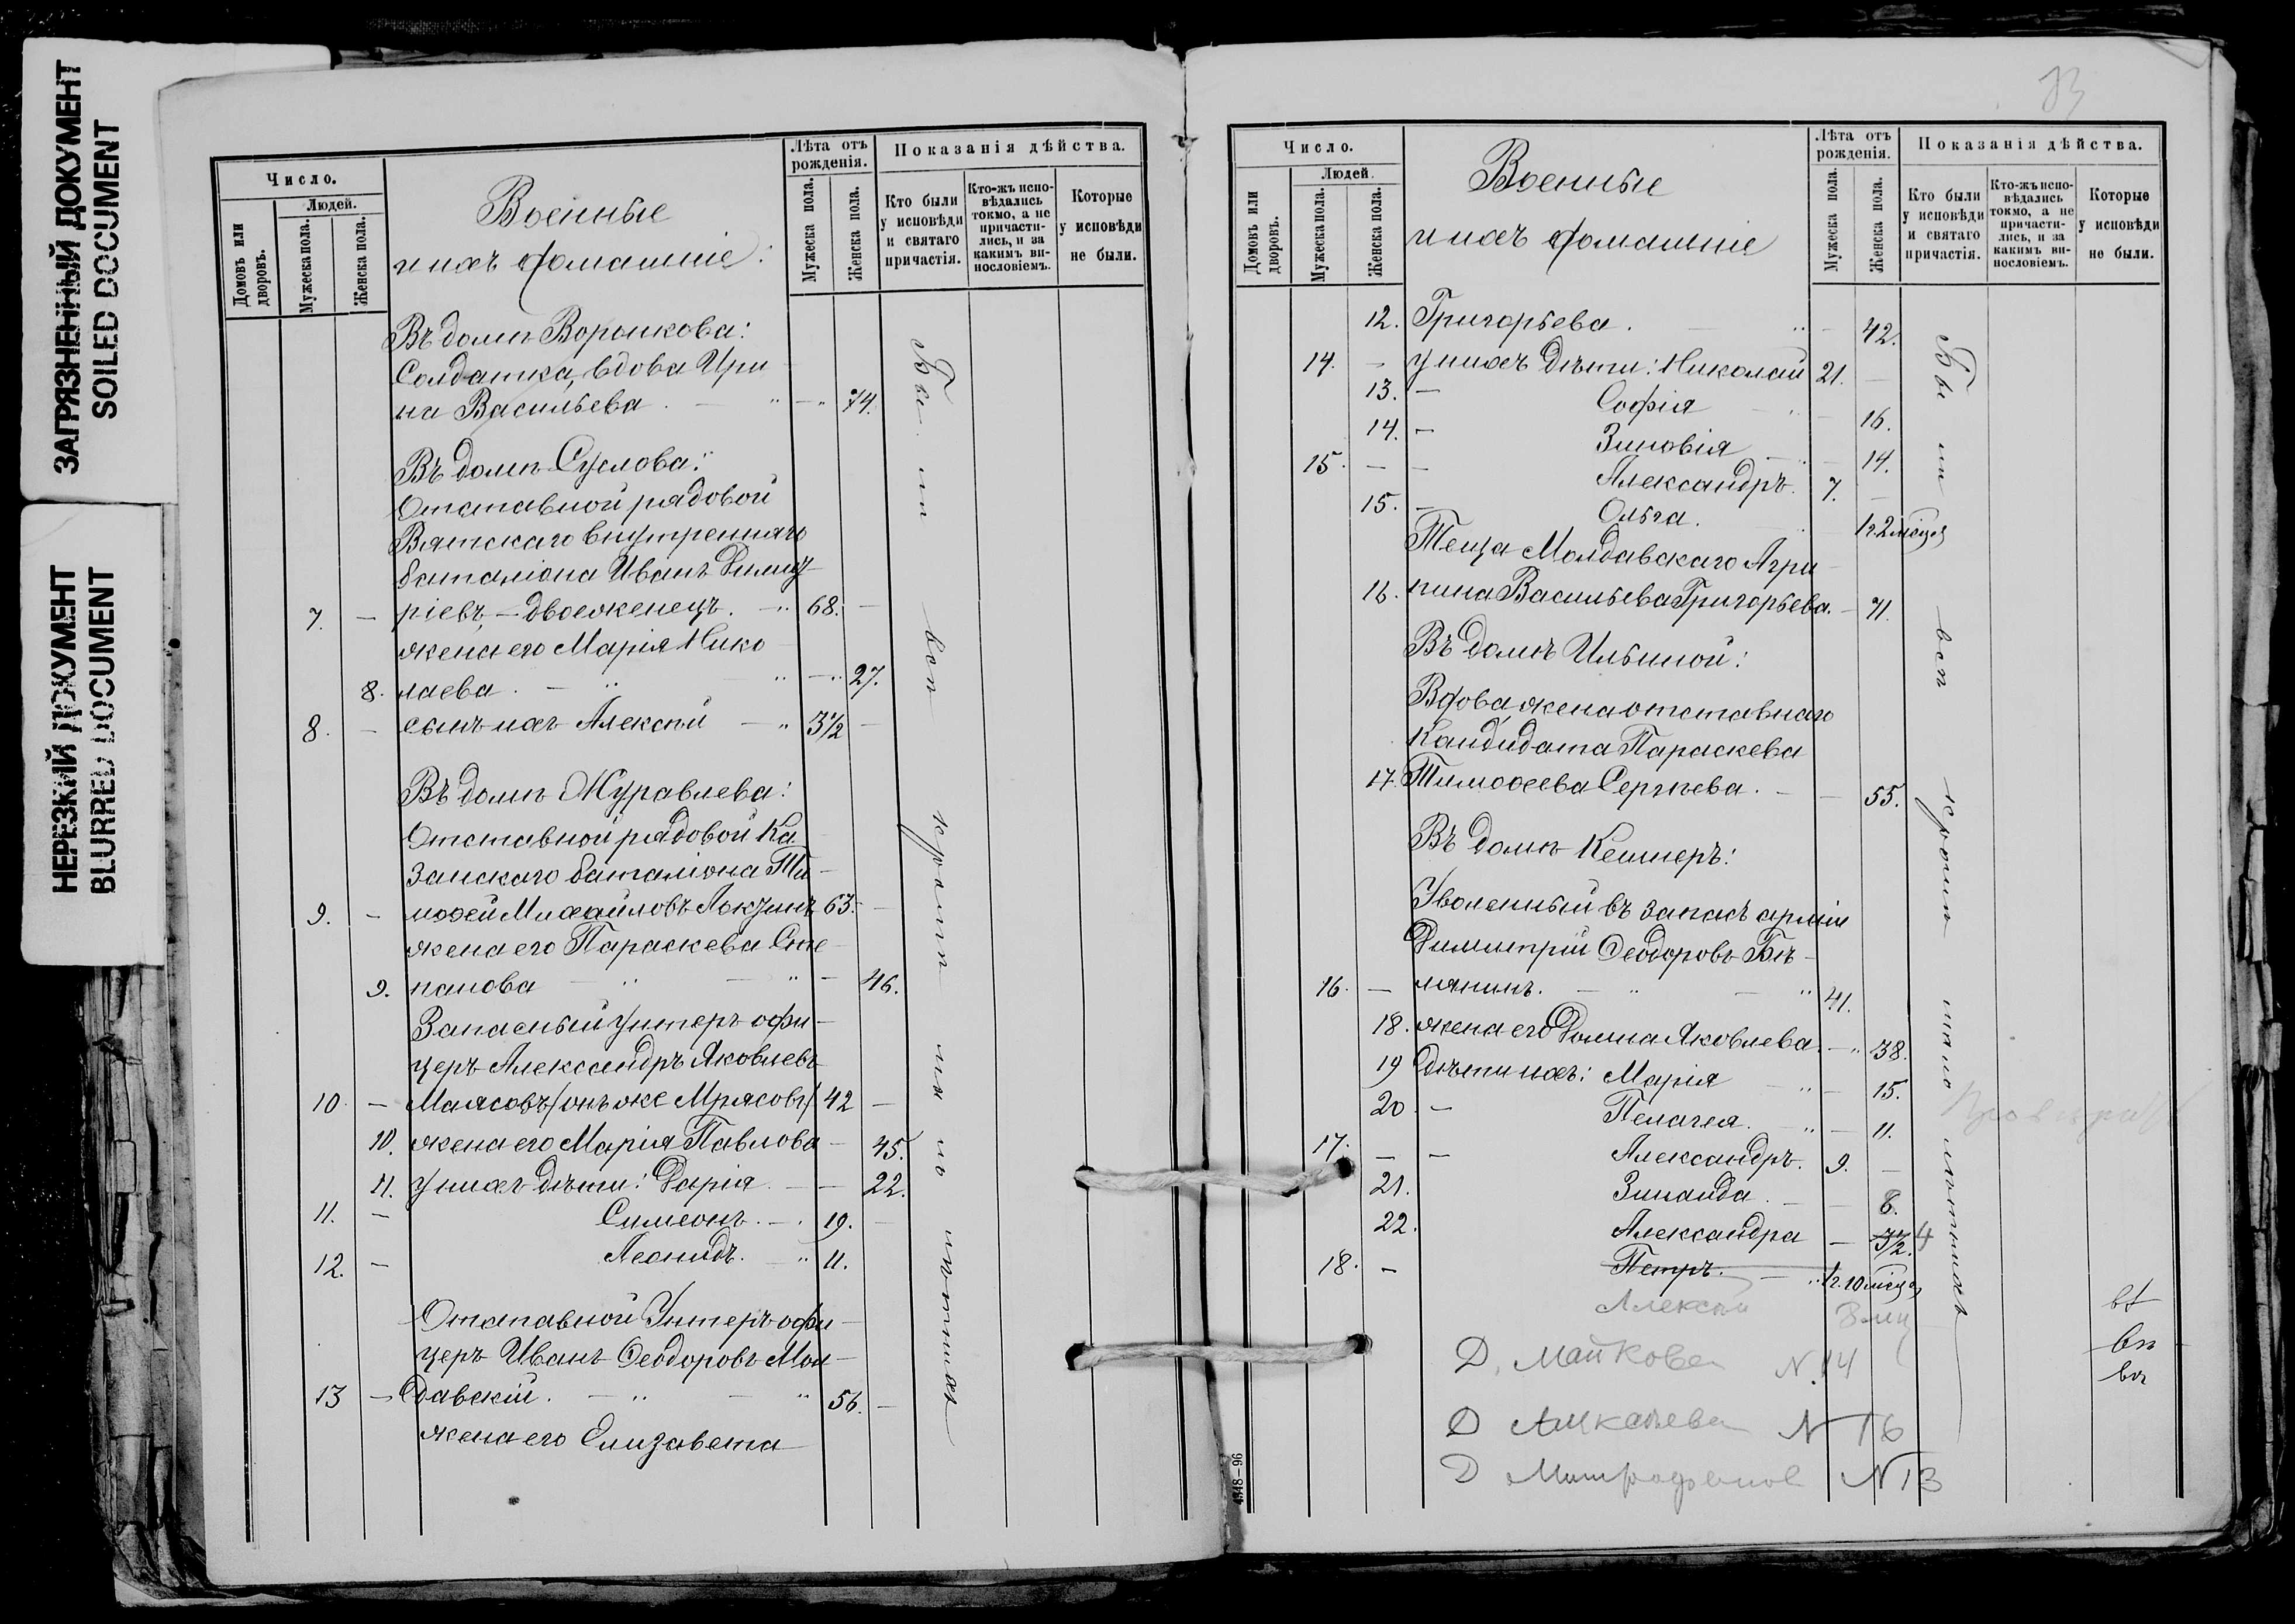 ЗАГРЯЗНЕННЫЙ ДОКУМЕНТ
SOILED DOCUMENT
НЕРЕЗКИЙ ДОКУМЕНТ
BLURRED DOCUMENT
Число.
Людей.
Домовъ или дворовъ.
Мужеска пола.
Женска пола.
Военные
и ихъ домашніе:
Лѣта отъ рожденія.
Мужеска пола.
Женска пола.
Показанія дѣйства.
Кто были у исповѣди и святаго причастія.
Кто-жъ исповѣдались токмо, а не причастились, и за какимъ винословіемъ.
Которые у исповѣди не были.
Въ домѣ Воронкова:
Солдатка, вдова Ири
на Васильева. — 74.
Въ домѣ Суслова:
Отставной рядовой
Вятскаго внутренняго
баталіона Иванъ Димит
7. — ріевъ, — двоеженецъ. — 68. —
жена его Марія Нико
8. лаева. — 27.
8. — сынъ ихъ Алексѣй — 3½ —
Въ домѣ Журавлева:
Отставной рядовой Ка
занскаго баталіона Ти-
9. — моѳей Михайловъ Локзинъ 63. —
жена его Параскева Сте
9. панова — 46.
Запасный унтеръ офи-
церъ Александръ Яковлевъ
10. — Маясовъ (онъ же Мрясовъ) 42 —
10. жена его Марія Павлова — 45.
11. у нихъ дѣти: Дарія — 22.
11. — Симеонъ. — 19. —
12. — Леонидъ. 11.
Отставной Унтеръ офи-
церъ Иванъ Ѳеодоровъ Мол-
13 — давскій. — 56. —
жена его Елизавета
Бы ли всѣ кромѣ мало лѣтнихъ
Число.
Людей.
Домовъ или дворовъ.
Мужеска пола.
Женска пола.
Военные
и ихъ домашніе
Лѣта отъ рожденія.
Мужеска пола.
Женска пола.
Показанія дѣйства.
Кто были у исповѣди и святаго причастія.
Кто-жъ исповѣдались токмо, а не причастились, и за какимъ винословіемъ.
Которые у исповѣди не были.
12. Григорьева. — 42.
14. — у нихъ дѣти: Николай 21. —
13. — Софія — 16.
14. — Зиновія — 14.
15. — — Александръ. 7. —
15. — Ольга. 1г. 2 мѣсяц
Теща Молдавскаго Агри
16. пина Васильева Григорьева. — 71.
Въ домѣ Ильиной:
Вдова, жена отставнаго
Кандидата Параскева
17. Тимоѳеева Сергѣева. — 55.
Въ домѣ Кешнеръ:
Уволенный въ запасъ арміи
Димитрій Ѳеодоровъ Бѣ-
16. — лянинъ. — 41.
18. жена его Домна Яковлева. — 38.
19 дѣти ихъ: Марія — 15.
20 — Пелагея. — 11.
17. — — Александръ. 9. —
21. Зинаида. — 8.
22. Александра — 3½. 4
18. — Петръ. 1г. 10 мѣсяц
Алексѣй 8 мц
Бы ли всѣ кромѣ мало лѣтнихъ
Д. Майкова N. 14
Д N 16
Д Митрофанов N 13
4348—96